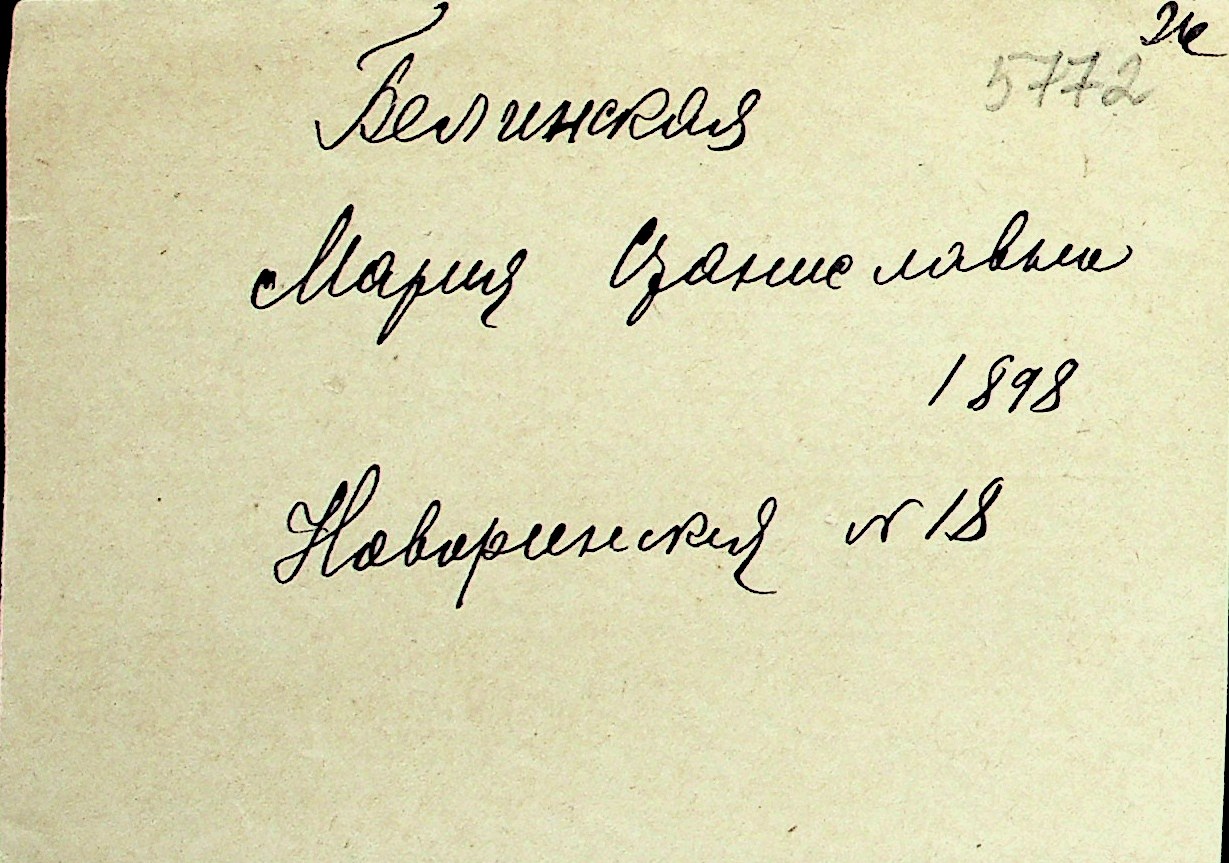 5772
Белинская
Мария Станиславна
1898
Новоринская № 18